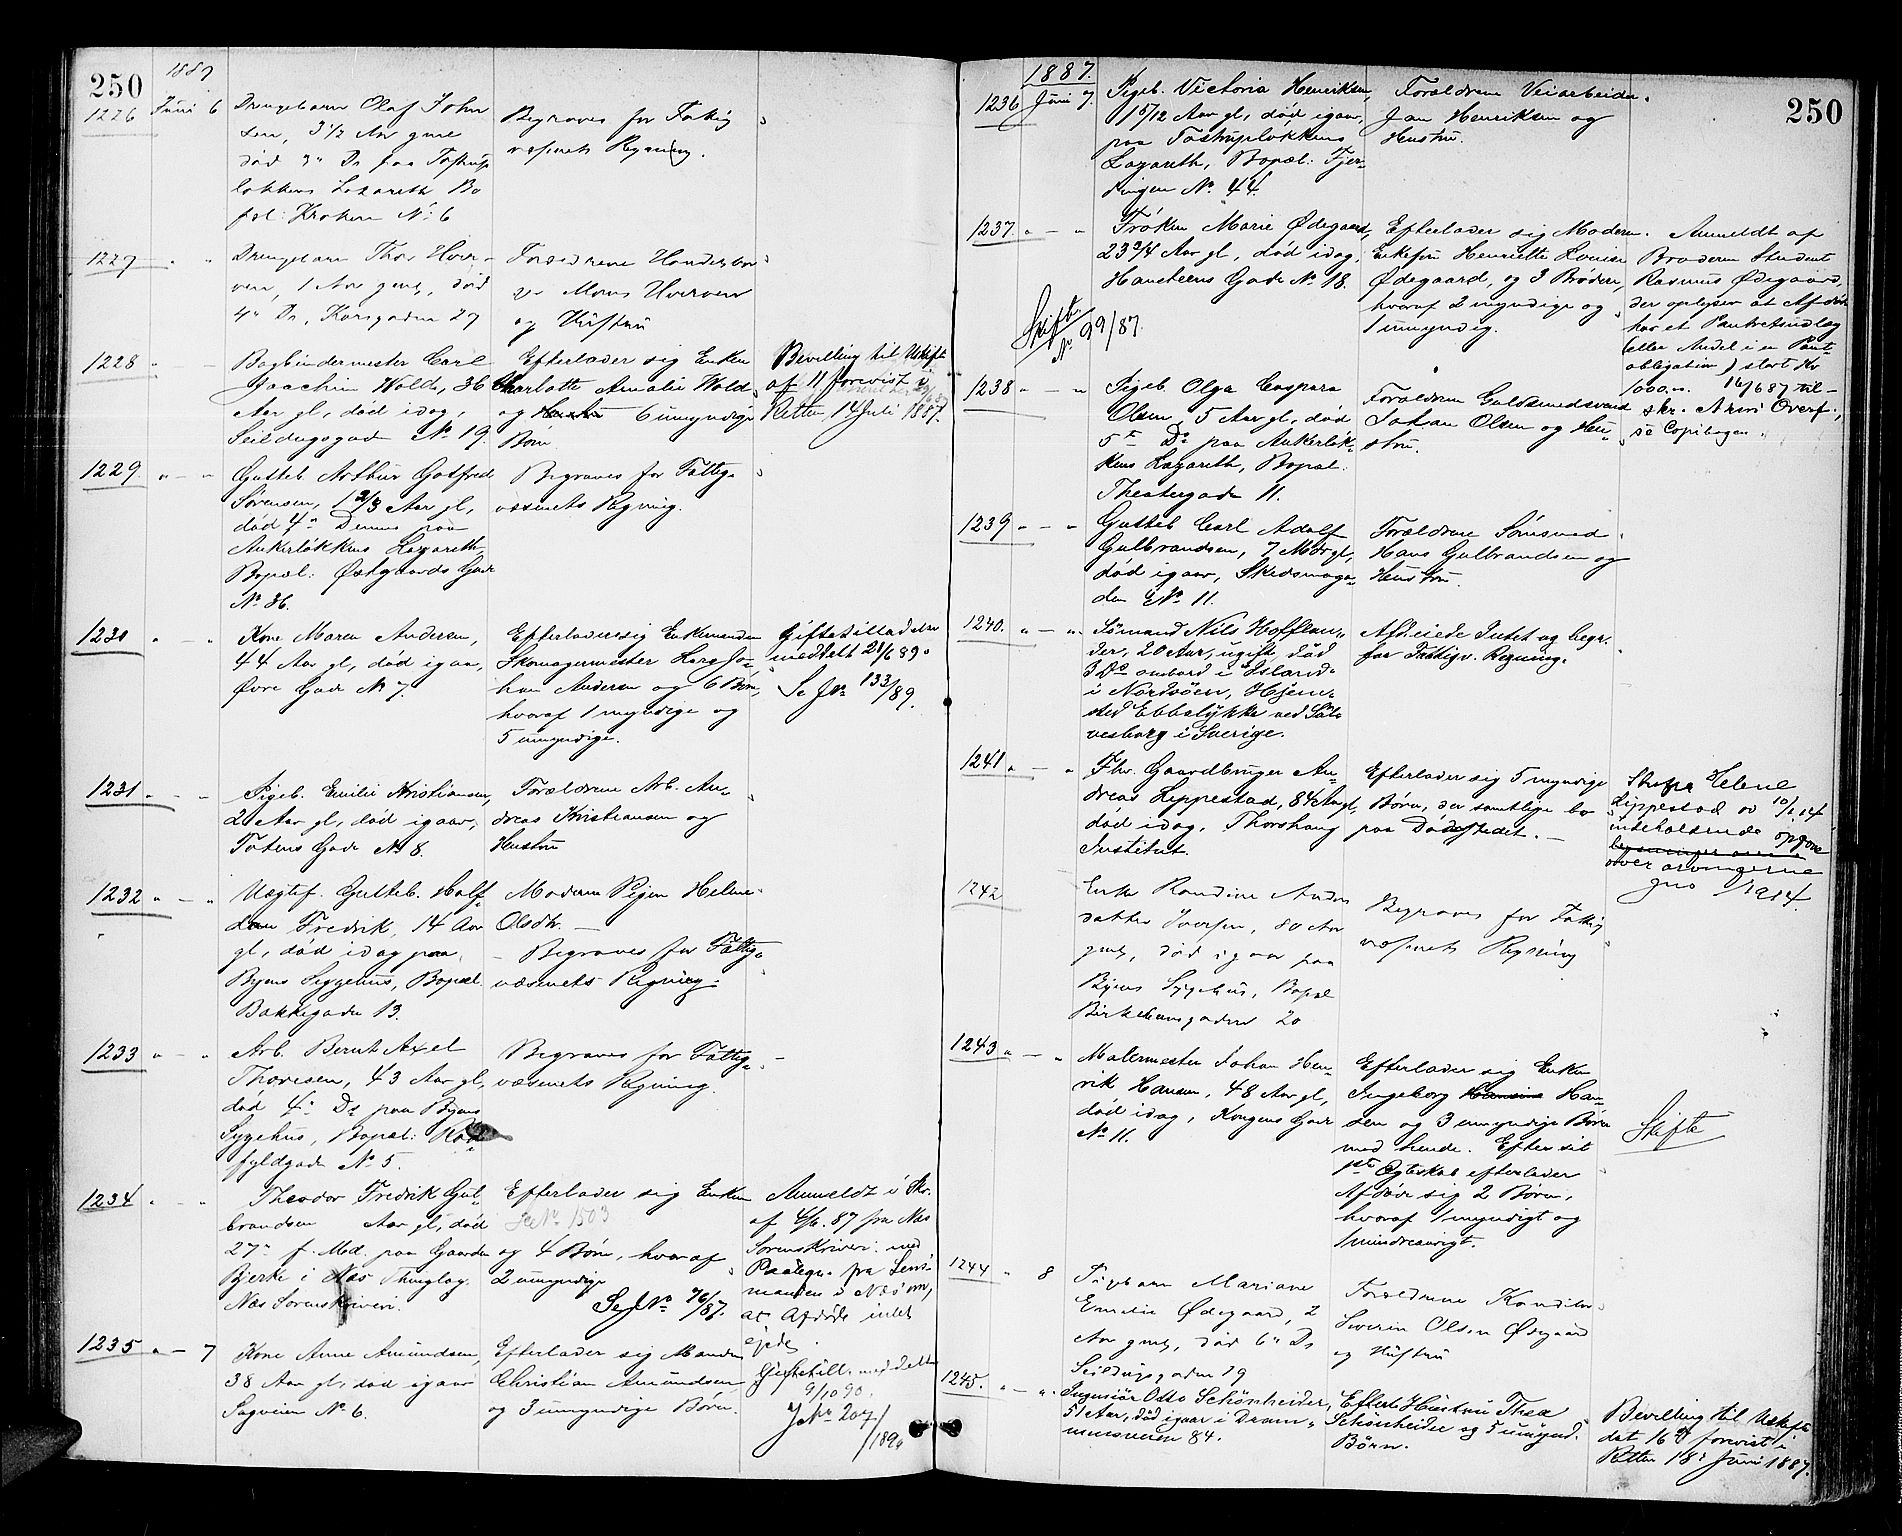 250
1887
1226 Juni 6 Drengebarn Olaf John
sen, 3 1/2 Aar gml
død 3" Ds paa Tostrup
løkkens Lazareth Bo
pæl: Kroken No 6
Begraves for Fattig
væsenets Regning.
1227 " " Drengebarn Thor Hver-
ven, 1 Aar gml, død
4" Ds, Korsgaden 27
Forældrene
Mons Hverven
og Hustru
1228 " Bogbindermester Carl
Joachim Wold, 36
Aar gl, død idag,
Seildugsgade No 19.
Efterlader sig Enken
Charlotte Amalie Wold
og 6 umyndige
Børn
Bevilling til Uskift
af 11 forevist i
Retten 14 Juli 1887.
1229 " - " Gutteb. Arthur Gotfred
Sørensen, 1 2/3 Aar gl,
død 4de Dennes paa
Ankerløkkens Lazareth
Bopæl: Østgaards Gade
No 36.
Begraves for Fattig-
væsenets Regning.
1230 " " Kone Maren Andersen,
44 Aar gl, død igaar,
Øvre Gade No 7.
Efterlader sig Enkemanden
Skomagermester Lars Jo-
han Andersen og 6 Børn,
hvoraf 1 myndige og
5 umyndige.
Giftetilladelse
meddelt 21/6 89.
Se J No 133/89.
1231 " - " Pigeb. Emilie Kristiansen,
2 Aar gl, død igaar,
Totens Gade No 8.
Forældrene Arb. An-
dreas Kristiansen og
Hustru
1232 " - " Uægtef. Gutteb. Half-
dan Fredrik, 14 Aar
gl, død idag paa
Byens Sygehus, Bopæl
Bakkegaden 13.
Moderen Pigen Helene
Olsdtr. -
- Begraves for Fattig-
væsenets Regning.
1233 " - " Arb. Bernt Axel
Thoresen, 43 Aar gl,
død 4de Ds paa Byens
Sygehus, Bopæl:
fyldgade No 5.
Begraves for Fattig-
væsenets Regning.
1234 " " Theodor Fredrik Gul-
brandsen Aar gl, død
27de f. Md. paa Gaarden
Bjerke i Næs Thinglag,
Næs Sorenskriveri.
Efterlader sig Enken
Se No 1503
og 4 Børn, hvoraf
2 umyndige
Se J No 76/87.
Anmeldt i Skr.
af 4/6. 87 fra Næs
Sorenskriveri. med
Paategn. fra Lens-
manden i Næs om,
at Afdøde intet
ejede.
1235 " - 7 Kone Anne Amundsen,
38 Aar gl, død igaar
Sagveien No 6.
Efterlader sig Manden
Christian Amundsen,
og 3 umyndige Børn.
Giftetill. meddelt
9/10 90.
J No 207/1890
250
1887.
1236 Juni 7. Pigeb. Victoria Henriksen,
1 5/12 Aar gl, død igaar,
paa Tostrupløkkens
Lazareth, Bopæl: Fjer-
dingen No 44.
Forældrene Veiarbeider
Jan Henriksen og
Hustru.
1237. " - " Frøken Marie Ødegaard,
23 3/4 Aar gl, død idag,
Hansteens Gade No 18.
Skifte No 99/87.
Efterlader sig Moderen
Enkefru Henriette Louise
Ødegaard, og 3 Brødre,
hvoraf 2 myndige og
1 umyndig.
Anmeldt af
Broderen Student
Rasmus Ødegaard,
der oplyser at Afdøde
har et Pantretindlæg
(eller Andel i en Pant-
obligation) stort Kr
1000.00. 16/6 87 til-
skr. Overf.,
se Copibogen.
1238 " - " Pigeb. Olga Caspara
Olsen, 5 Aar gl, død
5te Ds paa Ankerløk-
kens Lazareth, Bopæl.
Theatergade 11.
Forældrene Guldsmedsvend
Johan Olsen og Hu-
stru.
1239 " - " Gutteb. Carl Adolf
Gulbrandsen, 7 Mdr gl,
død igaar, Skedsmoga-
den No 11.
Forældrene
Hans Gulbrandsen og
Hustru.
1240. " - " Sømand Nils Hofflan-
der, 20 Aar, ugift, død
3 Ds ombord i "Island"
i Nordsøen, Hjem-
sted Ebbalykke ved Søl-
vesborg i Sverige.
Afd. eiede Intet og begr.
for Fattigv. Regning.
1241 " - " Fhv. Gaardbruger An-
dreas Lippestad, 84 Aar gl,
død idag, Thorshaug
Institut.
Efterlader sig 5 myndige
Børn, der samtlige bo
paa Dødsstedet. -
Helene
Lippestad 10/1 14
indeholdende opgave
over arvingerne
1914.
1242 Enke Randine Anders
datter Iversen, 80 Aar
gml, død igaar paa
Byens Sygehus, Bopæl
Birkebeinsgaden 20
Begraves for Fattig
væsenets Regning
1243 " - " Malermester Johan Hen-
rik Hansen, 48 Aar gl,
død idag, Kongens Gade
No 11.
Efterlader sig Enken
Ingeborg Hansine Han-
sen og 3 umyndige Børn
med hende. Efter sit
1ste Ægteskab efterlader
Afdøde sig 2 Børn,
hvoraf 1 myndigt og
1 mindreaarigt.
Skifte
1244 " 8 Pigebarn Mariane
Emelie Ødegaard, 2
Aar gml, død 6" Ds
Seildugsgaden 19
Forældrene Konditor
Severin Olsen Ødegaard
og Hustru
1245. " - " Ingeniør Otto Schönheider,
51 Aar, død igaar i Dram-
mensveien 84.
Efterl. Hustru Thea
Schönheider og 5 umynd.
Børn.
Bevilling til Uskifte
dat 16de forevist i
Retten 18de Juni 1887.